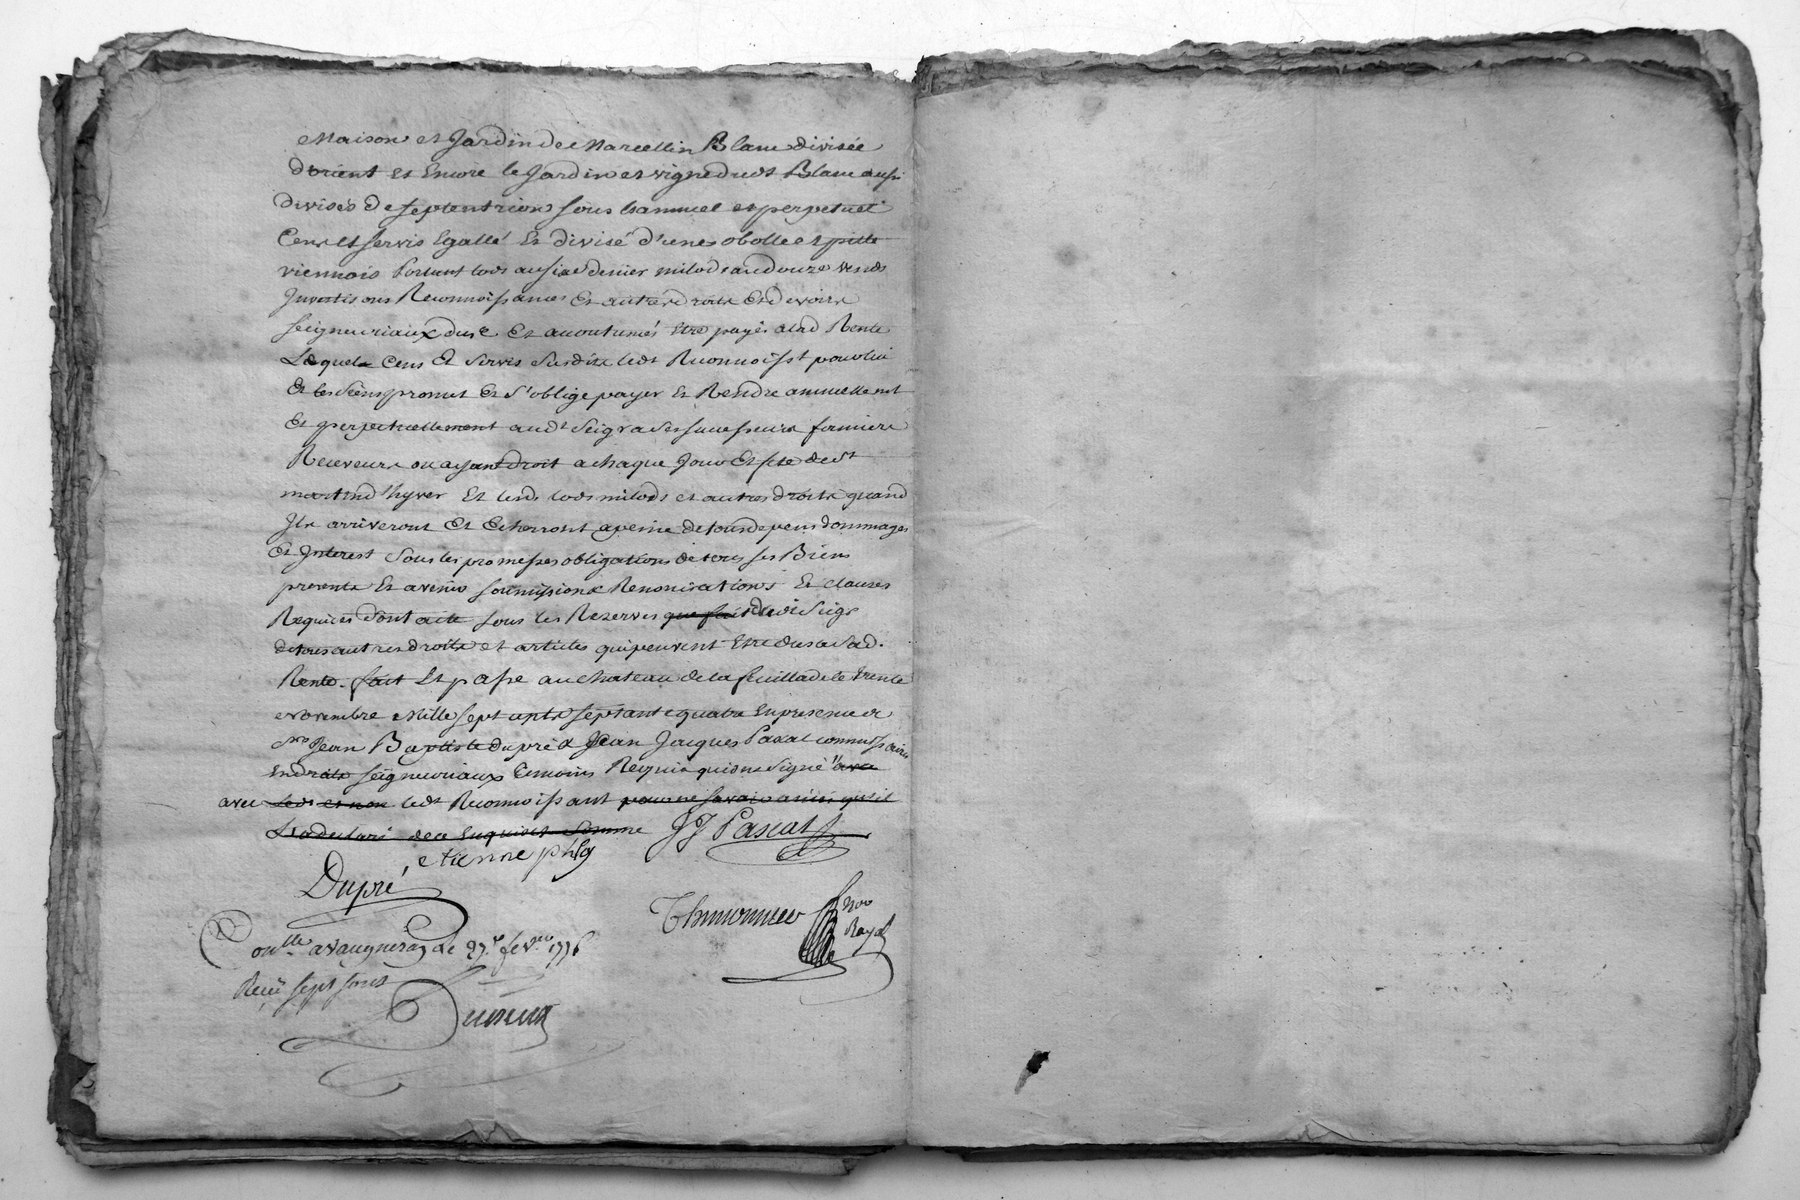 Maison et Jardin de Marcellin Blanc divisée
d'orient et Encore le Jardin et vigne dudt Blanc aussi
divisés de septentrion sous Lannuel et perpetuel
Cens et servis Egallé Et divisé d'une obolle et pitte
viennois Portant lods au sixe denier milods au douze vends
Investisons Reconnoissances Et autres droits Et devoirs
seigneuriaux dus Et accoutumés Etre payés a lad Rente
Lesquels Cens Et Servis Susdits ledt Reconnoisst pour lui
Et les Siens promet Et S'oblige payer Et Rendre annuellemt
Et perpetuellement audt Seigr a Ses successeurs fermiers
Receveurs ou ayant droit a chaque Jour Et fete de st
martin d'hyver Et lesds lods milods et autres droits quand
Ils arriveront Et Echerront a peine de tous depens dommages
Et Interest Sous les promesses obligations de tous ses Biens
presents Et avenir soumissions Renonciations Et clauses
Requises dont acte sous les Reserves que fait ledt Seigr
de tous autres droits et articles qui peuvent Etre dus a Sad.
Rente. fait Et passé au chateau de la feuillade le trente
Novembre Mille sept cents septante quatre En presence de
Jean Baptiste dupré & Jean Jacques Pascal commissaires
En droits seigneuriaux temoins Requis qui ont Signé avec
avec ledt Reconnoissant
JJ Pascal
etienne
Dupré
Thimonnier Nore Royal
Conlle a vaugneray Le 27e fevrer 1776
Reçu sept sous